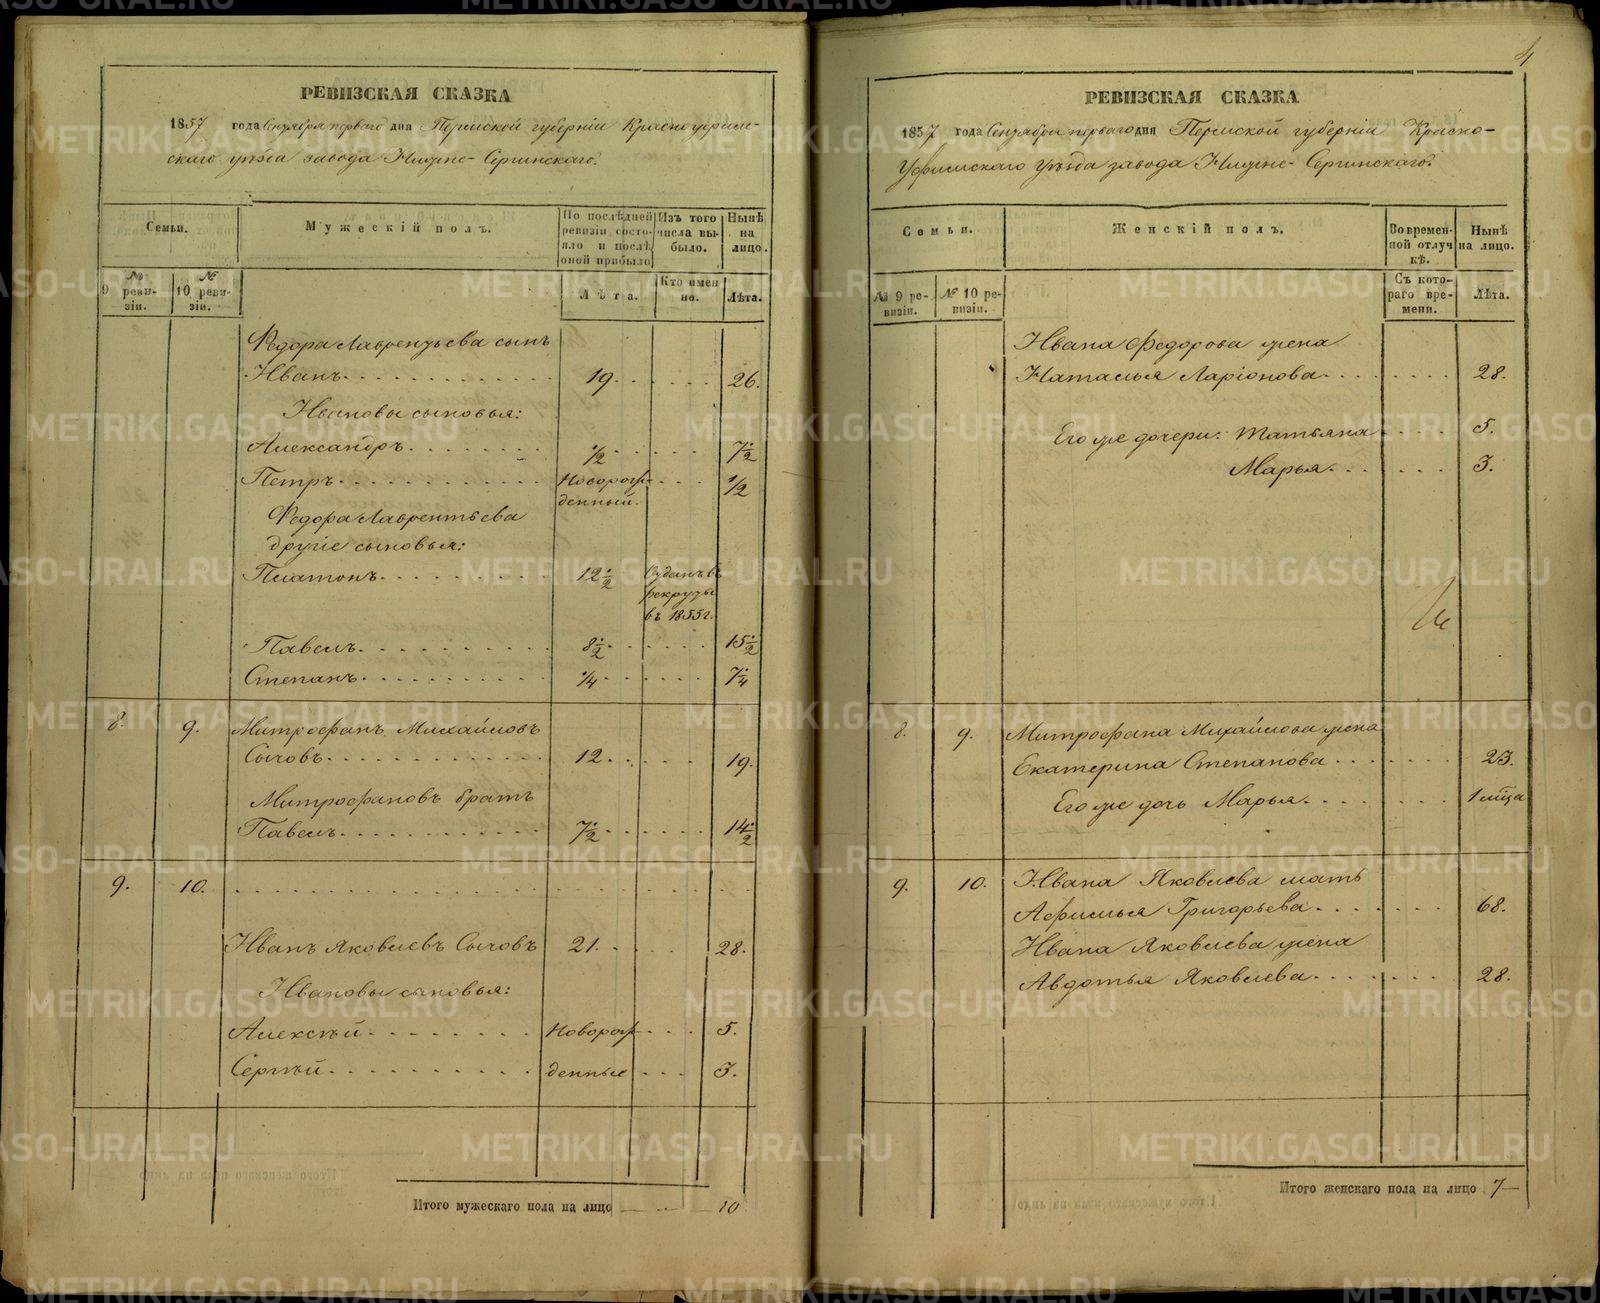 РЕВИЗСКАЯ СКАЗКА
1857 года Сентября перваго дня Пермской губерніи Красноуфим-
скаго уѣзда завода Нижне-Сергинскаго.
Семьи.
Мужескій полъ.
По послѣдней ревизіи состояло и послѣ оной прибыло
Изъ того числа выбыло.
Нынѣ на лицо.
№ 9 ревизіи.
№ 10 ревизіи.
Лѣта.
Кто именно.
Лѣта.
Федора Лаврентьева сынъ
Иванъ 19. 26.
Ивановы сыновья:
Александръ 1/2 7 1/2
Петръ Новорожденный. 1/2
Федора Лаврентьева
другіе сыновья:
Платонъ 12 1/2 Отданъ въ рекруты въ 1855 г.
Павелъ 8 1/2 15 1/2
Степанъ 1/4 7 1/4
8. 9. Митрофанъ Михайловъ
Сычовъ 12. 19.
Митрофановъ братъ
Павелъ 7 1/2 14 1/2
9. 10.
Иванъ Яковлевъ Сычовъ 21. 28.
Ивановы сыновья:
Алексѣй Новорож 5.
Сергѣй денные 3.
Итого мужескаго пола на лицо 10
4
РЕВИЗСКАЯ СКАЗКА
1857 года Сентября перваго дня Пермской губерніи Красно-
Уфимскаго уѣзда завода Нижне-Сергинскаго.
Семьи.
Женскій полъ.
Во временной отлучкѣ.
Нынѣ на лицо.
№ 9 ревизіи.
№ 10 ревизіи.
Съ котораго времени.
Лѣта.
Ивана Федорова жена
Наталья Ларіонова 28.
Его же дочери: Татьяна 5.
Марья 3.
8. 9. Митрофана Михайлова жена
Екатерина Степанова 23.
Его же дочь Марья 1 мѣсяца
9. 10. Ивана Яковлева мать
Афимья Григорьева 68.
Ивана Яковлева жена
Авдотья Яковлева 28.
Итого женскаго пола на лицо 7
METRIKI.GASO-URAL.RU